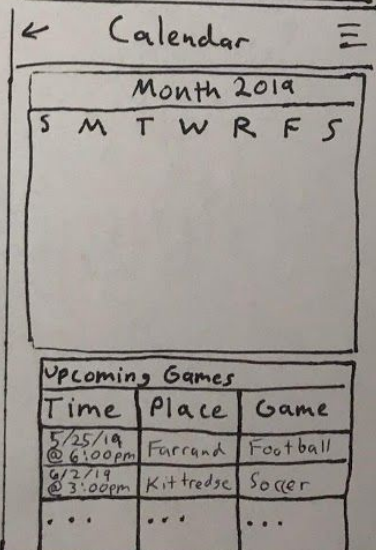 ← Calendar
Month 2019
S M T W R F S
Upcoming Games
Time Place Game
5/25/19
@ 6:00pm Farrand Football
6/2/19
@ 3:00pm Kittredge Soccer
... ... ...